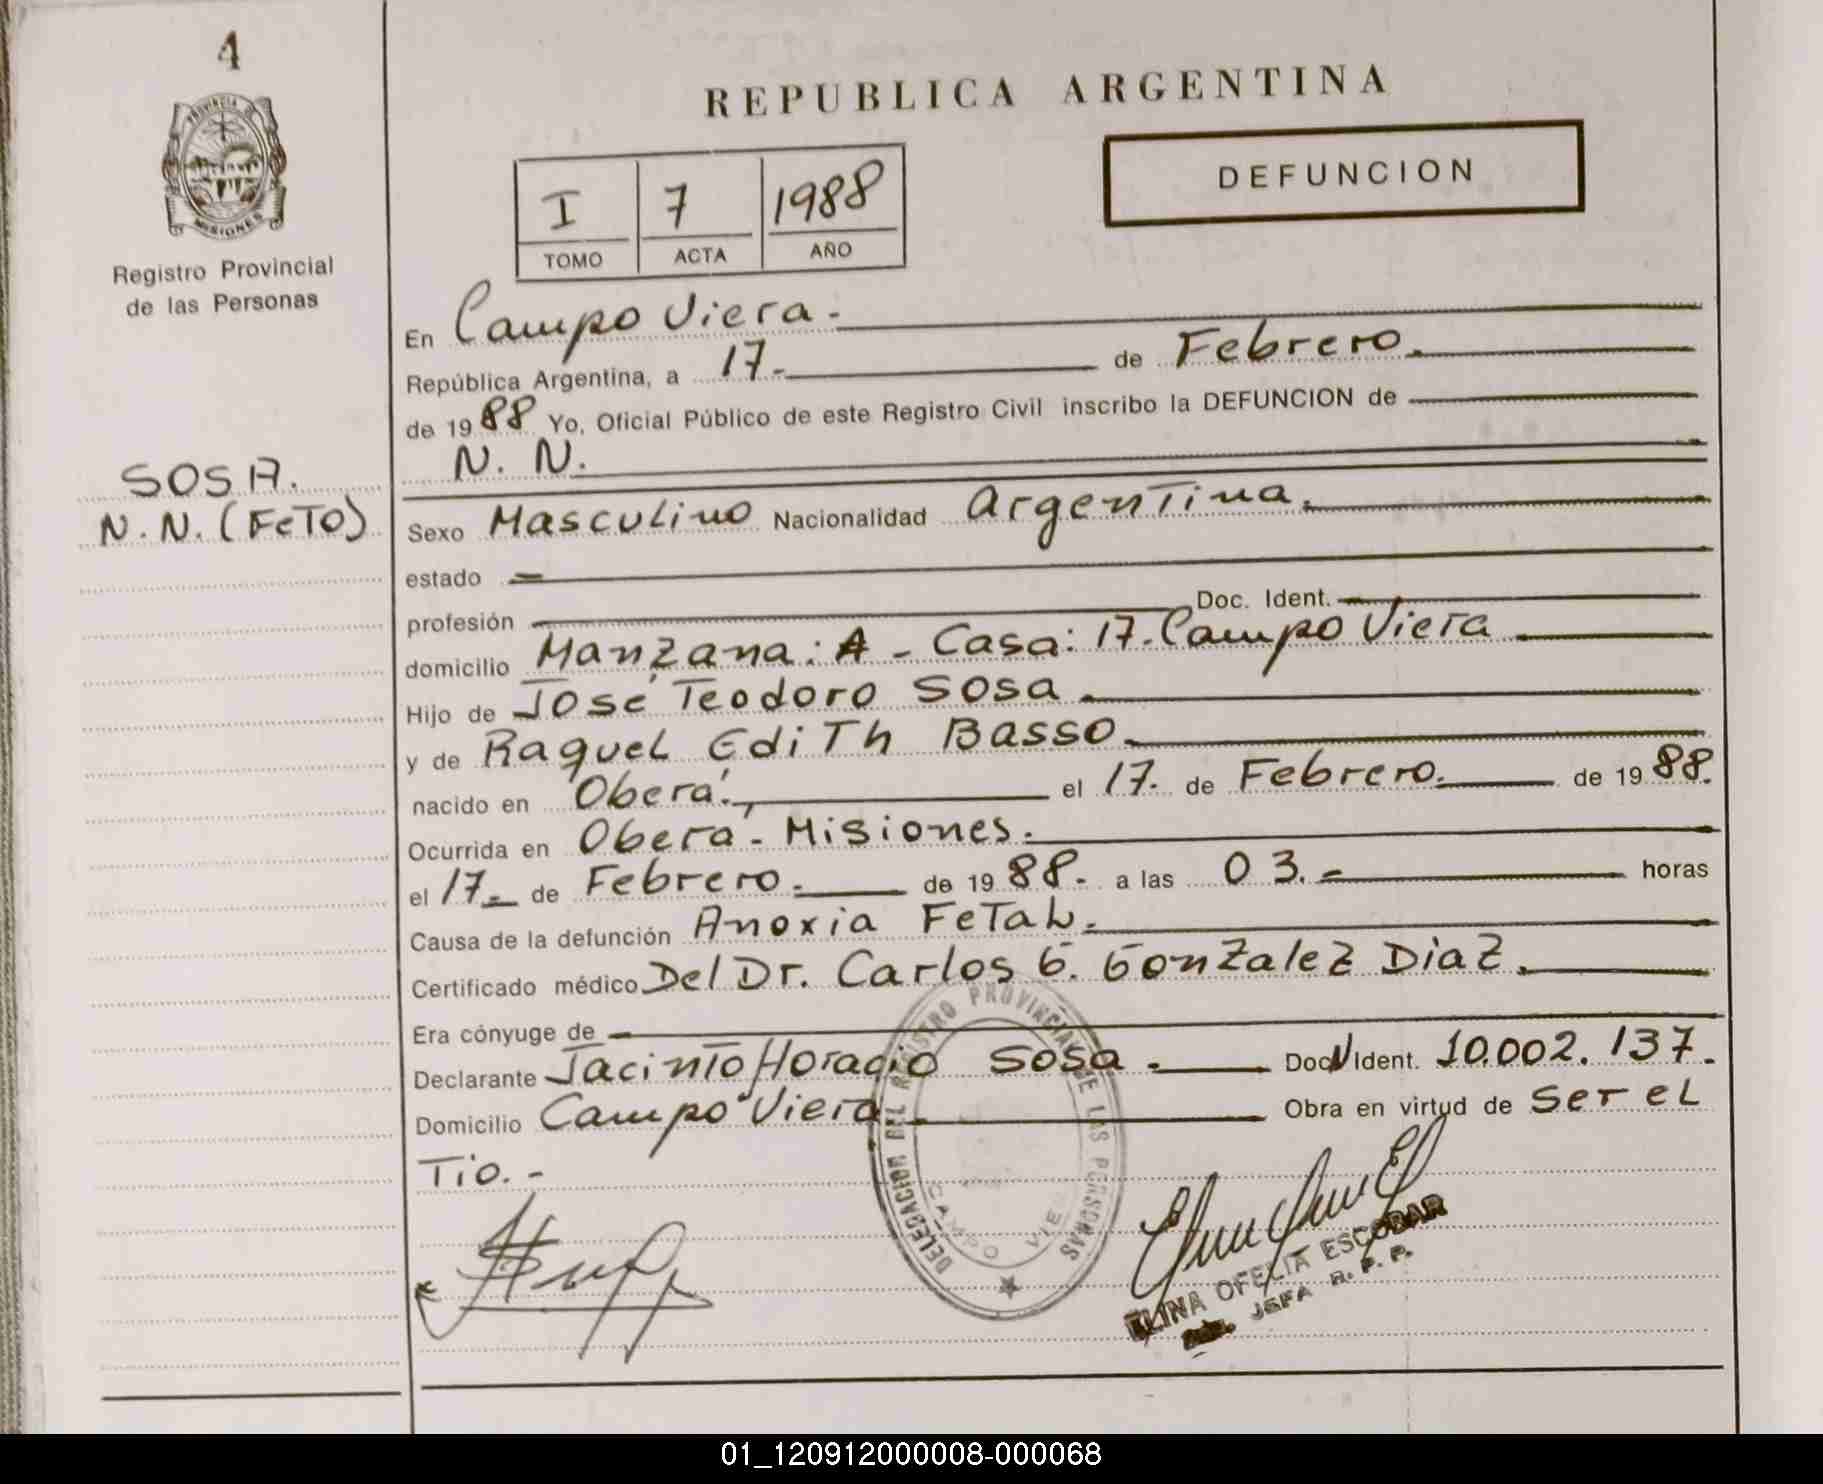 4
PROVINCIA DE
MISIONES
Registro Provincial
de las Personas
SOSA.
N.N. (FETO)
REPUBLICA ARGENTINA
DEFUNCION
I 7 1988
TOMO ACTA AÑO
En Campo Viera.
República Argentina, a 17.- de Febrero.
de 1988 Yo, Oficial Público de este Registro Civil inscribo la DEFUNCION de
N. N.
Sexo Masculino Nacionalidad Argentina.
estado -
profesión Doc. Ident.
domicilio Manzana: A - Casa: 17. Campo Viera
Hijo de José Teodoro Sosa
y de Raquel Edith Basso
nacido en Oberá., el 17. de Febrero. de 1988.
Ocurrida en Oberá - Misiones.
el 17.- de Febrero. de 1988. a las 03.- horas
Causa de la defunción Anoxia Fetal.
Certificado médico Del Dr. Carlos G. Gonzalez Diaz.
Era cónyuge de
Declarante Jacinto Horacio Sosa. Doc. N Ident. 10.002.137.
Domicilio Campo Viera Obra en virtud de ser el
Tio.-
DELEGACION DEL REGISTRO PROVINCIAL DE LAS PERSONAS
CAMPO VIERA
ELINA OFELIA ESCOBAR
JEFA R. P. P.
01_120912000008-000068